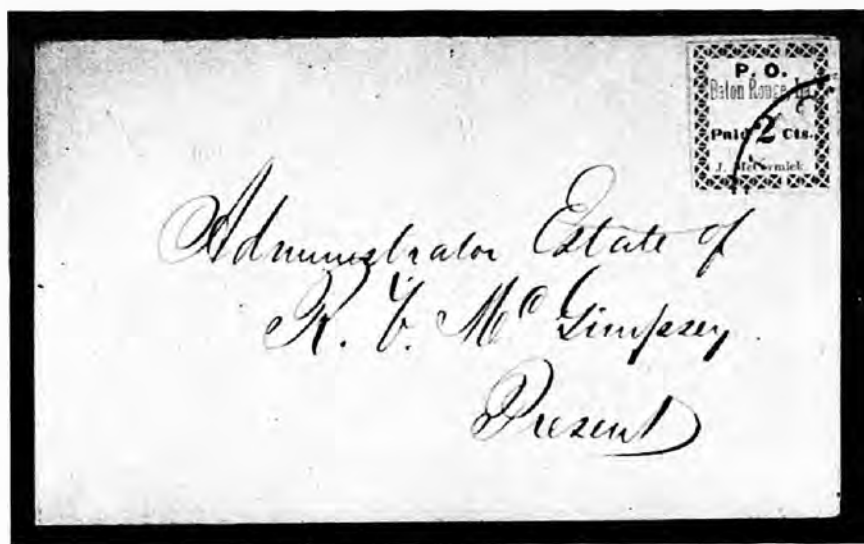 P. O.
Baton Rouge, La.
Paid 2 Cts.
J. McCormick.
Administrator Estate of
R. G. McGimpsey
Present